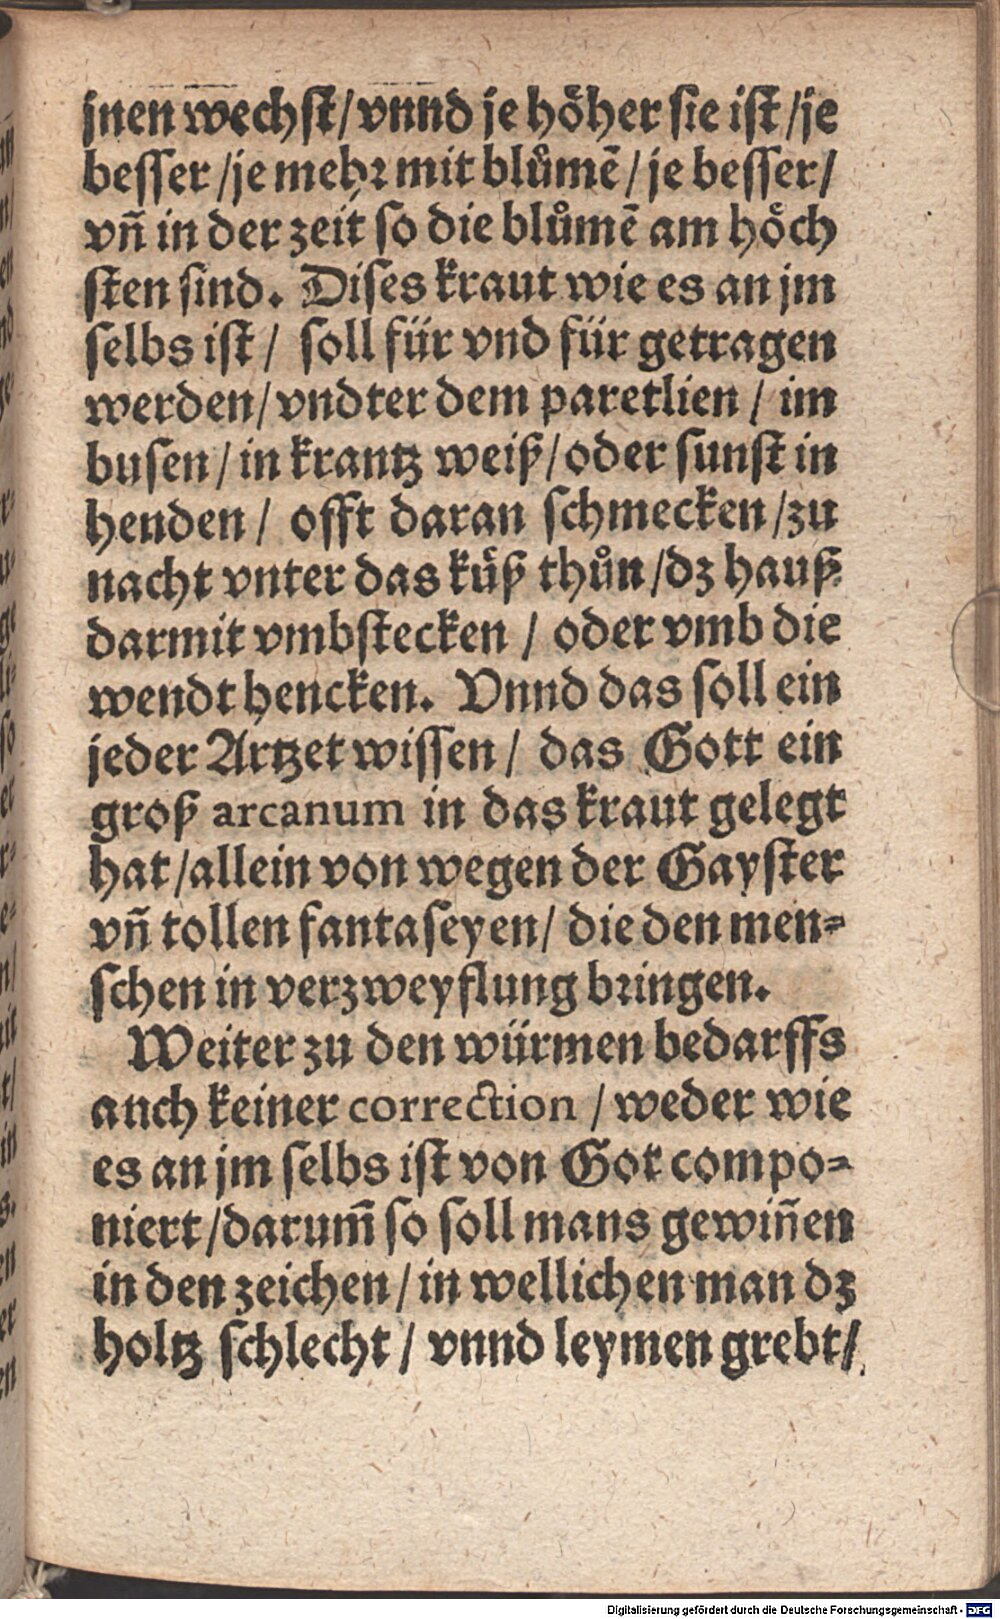 jnen wechst/vnnd je hoͤher sie ist/je
besser/je mehr mit bluͦmē/je besser/
vñ in der zeit so die bluͦmē am hoͤch
sten sind. Dises kraut wie es an jm
selbs ist/ soll für vnd für getragen
werden/vndter dem paretlien/ im
busen/in krantz weiß/oder sunst in
henden/ offt daran schmecken/zu
nacht vnter das küß thuͦn/dz hauß
darmit vmbstecken/ oder vmb die
wendt hencken. Vnnd das soll ein
jeder Artzet wissen/ das Gott ein
groß arcanum in das kraut gelegt
hat/allein von wegen der Gayster
vñ tollen fantaseyen/ die den men⸗
schen in verzweyflung bringen.
Weiter zu den würmen bedarffs
anch keiner correction/weder wie
es an jm selbs ist von Got compo⸗
niert/darum̃ so soll mans gewiñen
in den zeichen/in wellichen man dz
holtz schlecht/ vnnd leymen grebt/
Digitalisierung gefördert durch die Deutsche Forschungsgemeinschaft - DFG